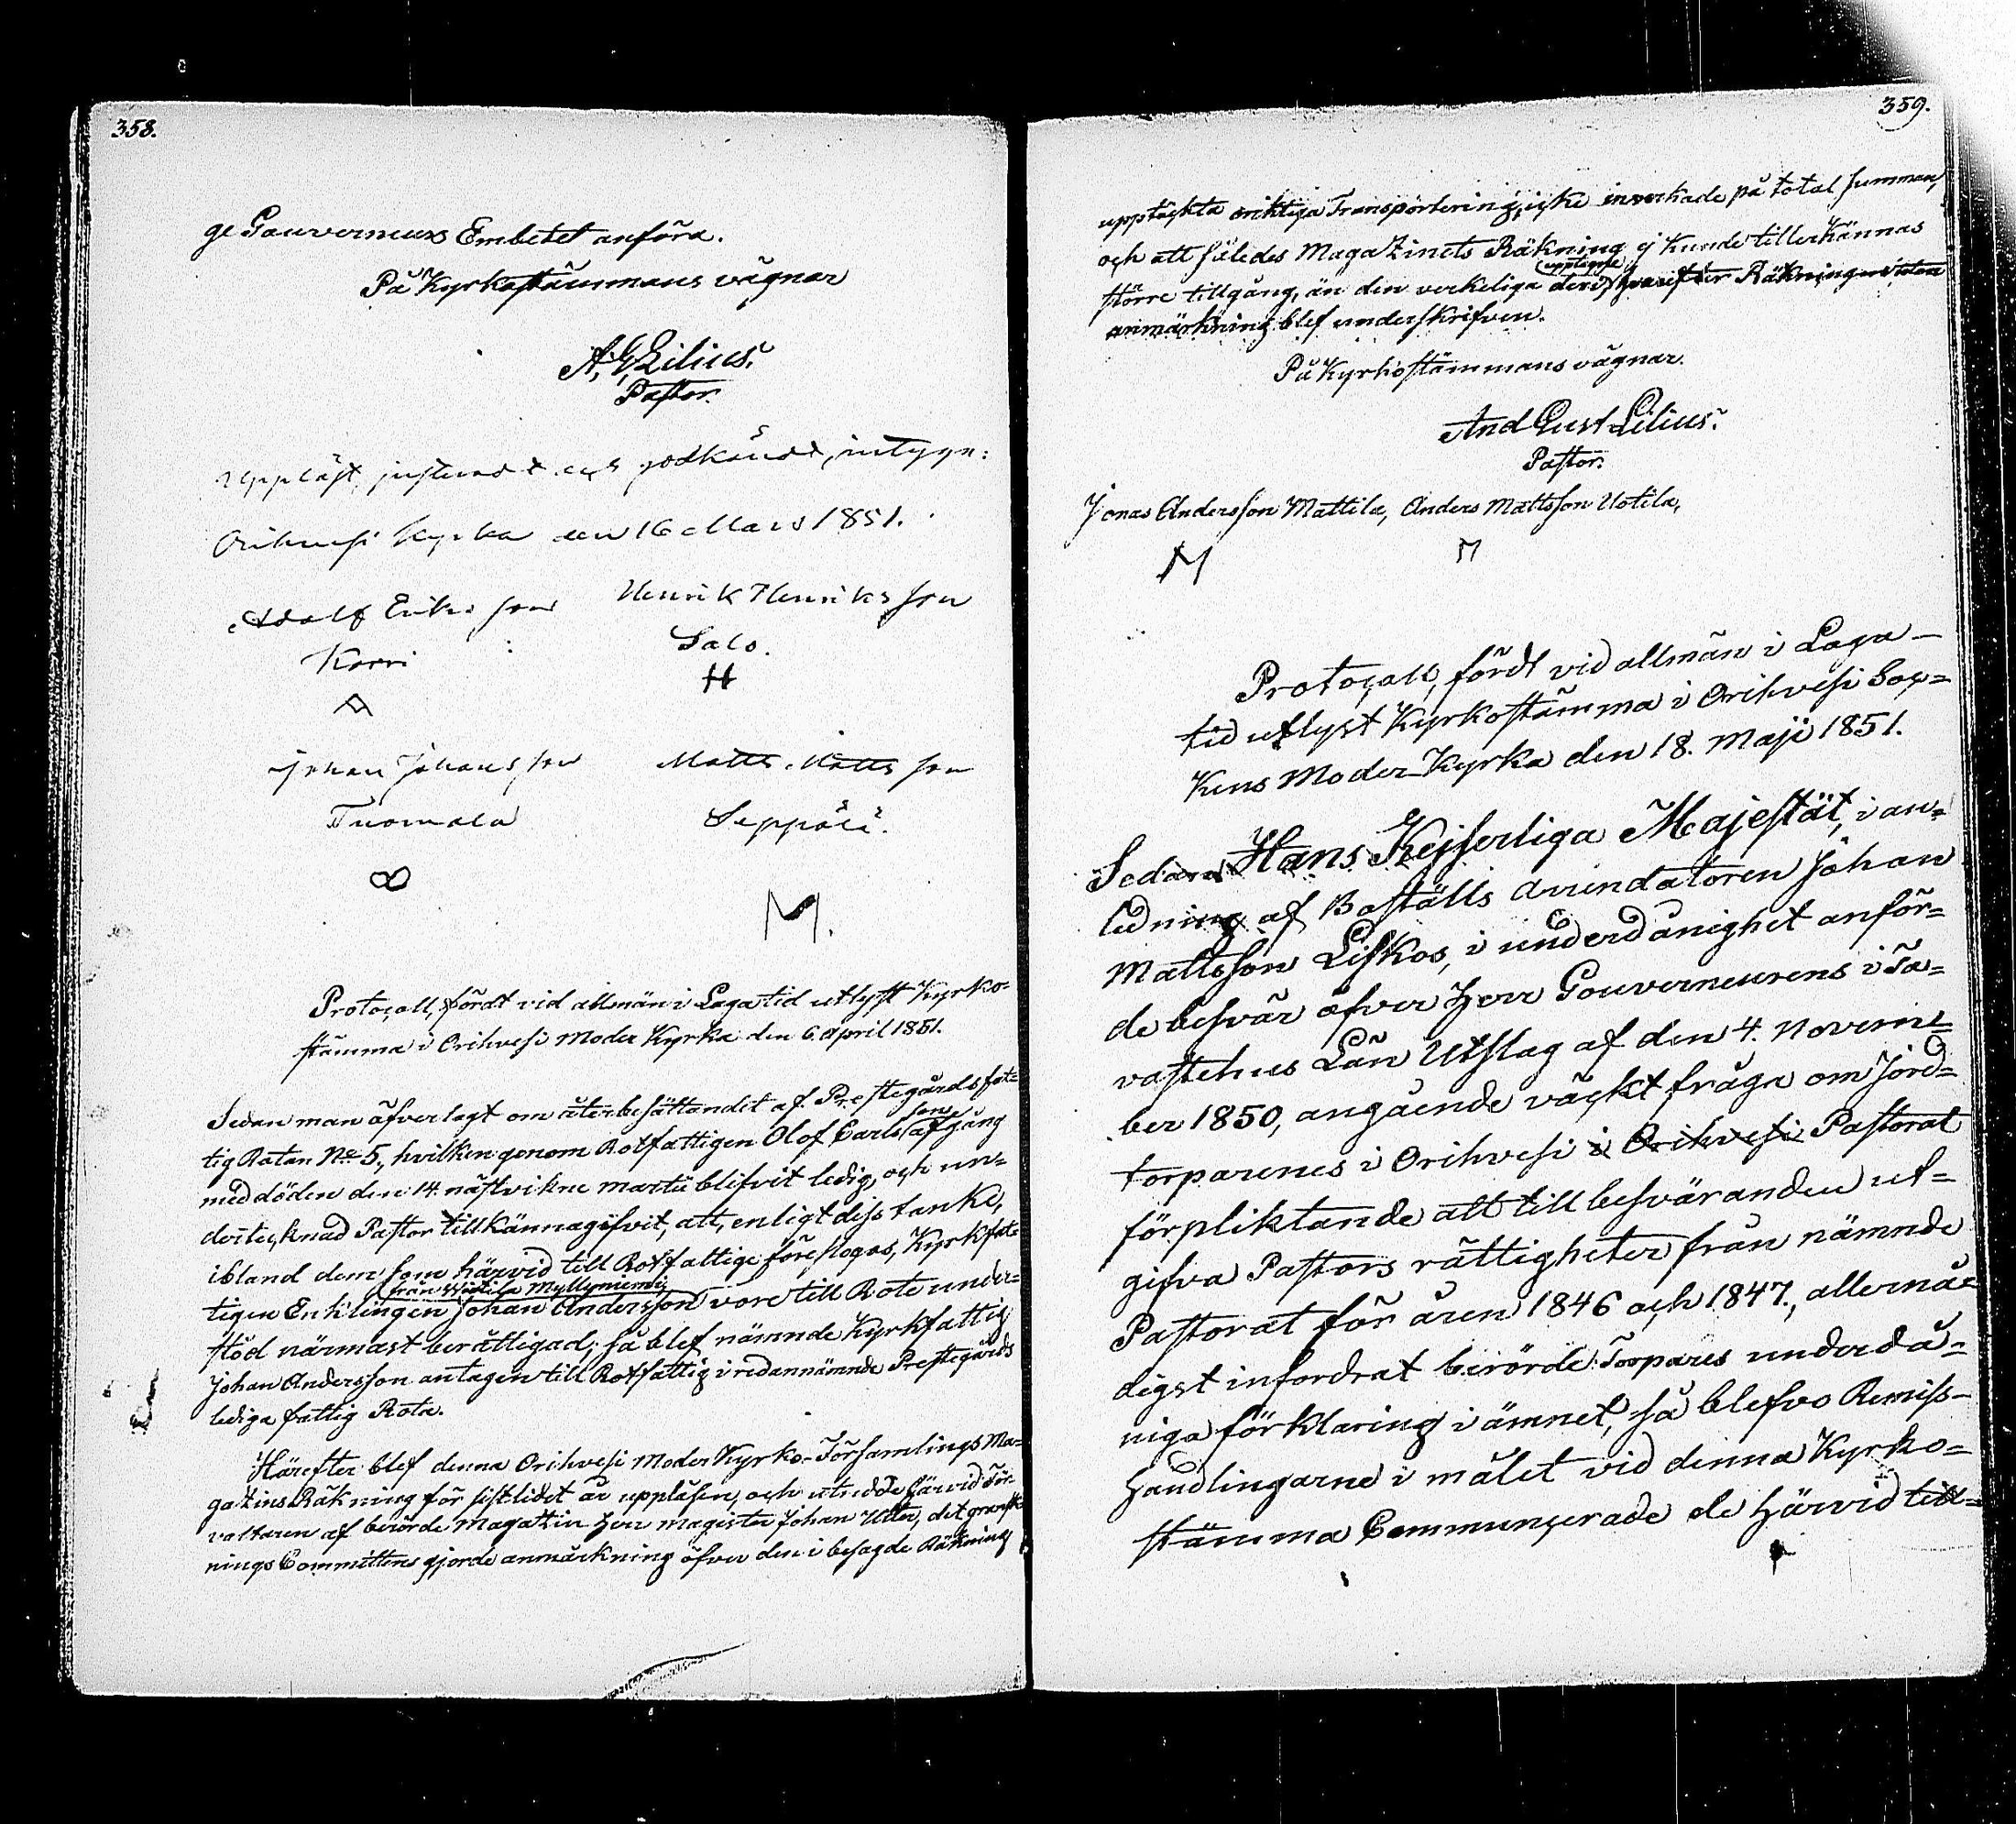 358.
ge Gouverneurs Embetet anföra.
På Kyrkostämmans vägnar
A. G. Lilius.
Pastor.
Uppläst, justeradt och godkändt, intyga:
Orihvesi Kyrka den 16 Mars 1851.
Adolf Eriksson Henrik Henriksson
Korri Salo.
H
Johan Johansson Matts Mattsson
Tuomala Seppälä.
M.
Protocoll, fördt vid allmän i Laga tid utlyst Kyrko-
stämma i Orihvesi Moder Kyrka den 6 April 1851.
Sedan man öfverlagt om återbesättandet af Prestegårds fat-
tig Rotan No 5., hvilken genom Rotfattigen Olof Carlssons afgång
med döden den 14. nästvikne martii blifvit ledig, och un-
dertecknad Pastor tillkännagifvit, att, enligt dess tanke,
ibland dem som härvid till Rotfattige föreslogos, Kyrkfat-
från Yliskylä Myllyniemi
tigen Enklingen Johan Andersson vore till Rote under-
stöd närmast berättigad; så blef nämnde Kyrkfattig
Johan Andersson antagen till Rotfattig i redannämnde Prestegårds
lediga fattig Rota.
Härefter blef denna Orihvesi Moder Kyrko-Församlings Ma-
gazins Räkning för sistlidet år uppläsen, och utredde härvid För-
valtaren af berörde Magazin Herr Magister Johan Utter, det gransk-
nings Committens gjorde anmärkning öfver den i besagde Räkning
359.
upptäckta oriktiga Transportering, icke inverkade på total summan,
och att således Magazinets Räkning ej kunde tillerkännas
större tillgång, än den verkeliga deri upptagne, hvarefter Räkningen utan
anmärkning blef underskrifven.
På Kyrkostämmans vägnar.
And Gust Lilius.
Pastor.
Jonas Andersson Mattila, Anders Mattsson Uotila,
M M
Protocoll, fördt vid allmän i Laga
tid utlyst Kyrkostämma i Orihvesi Soc-
kens Moder Kyrka den 18. Maji 1851.
Sedan Hans Kejserliga Majestät, i an-
ledning af Boställs Arrendatoren Johan
Mattsson Liskos, i underdånighet anför-
de besvär öfver Herr Gouverneurens i Ta-
vastehus Län Utslag af den 4. Novem-
ber 1850, angående väckt fråga om Jord-
torparenes i Orihvesi i Orihvesi Pastorat
förpliktande att till besväranden ut-
gifva Pastors rättigheter från nämnde
Pastorat för åren 1846 och 1847., allernå-
digst infordrat berörde Torpares underdå-
niga förklaring i ämnet, så blefvo Remiss-
handlingarne i målet vid denna Kyrko-
stämma Communicerade de härvid till-